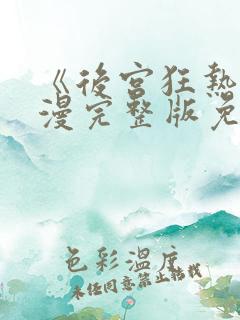 《後宮狂熱
漫完整版免
色彩溫度
未经同意禁止转载